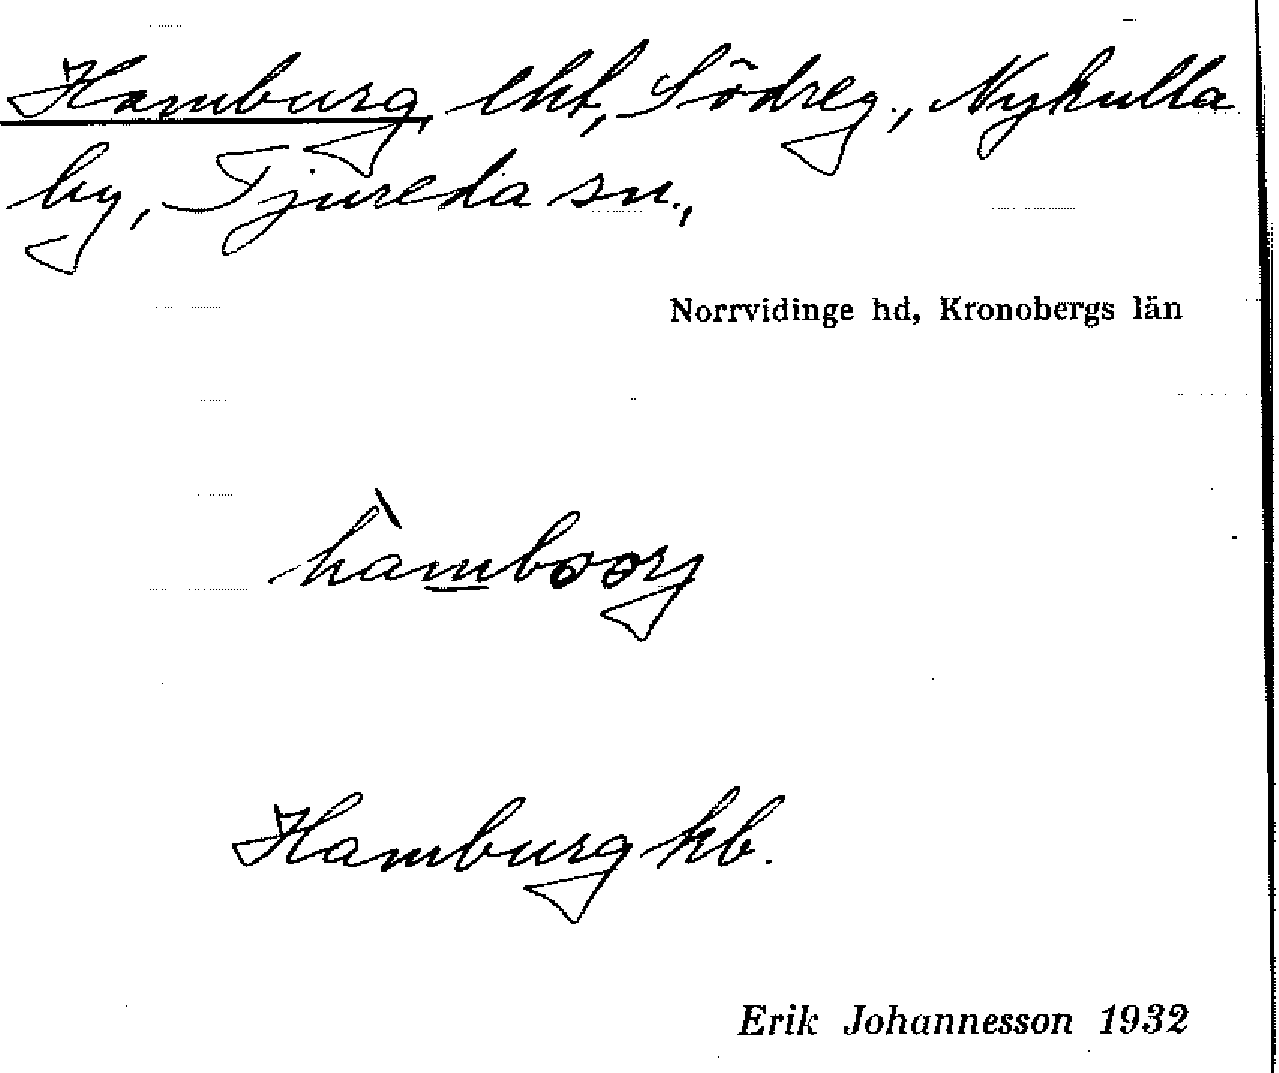 Hamburg, lht, Södreg., Nykulla
by, Tjureda sn.,
Norrvidinge hd, Kronobergs län
hàmboorg
Hamburg kb.
Erik Johannesson 1932